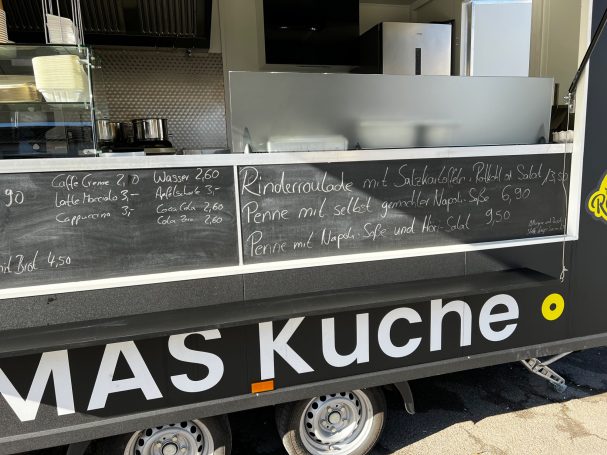 90
Caffe Creme 2,10
Latte Macciato 3,-
Cappuccino 3,-
mit Brot 4,50
Wasser 2,60
Apfelschorle 3,-
Coca Cola 2,60
Cola Zero 2,60
Rinderroulade mit Salzkartoffeln, Rotkohl o. Salat 13,50
Penne mit selbst gemachter Napoli-Soße 6,90
Penne mit Napoli-Soße und Hör-Salat 9,50
MAS Küche